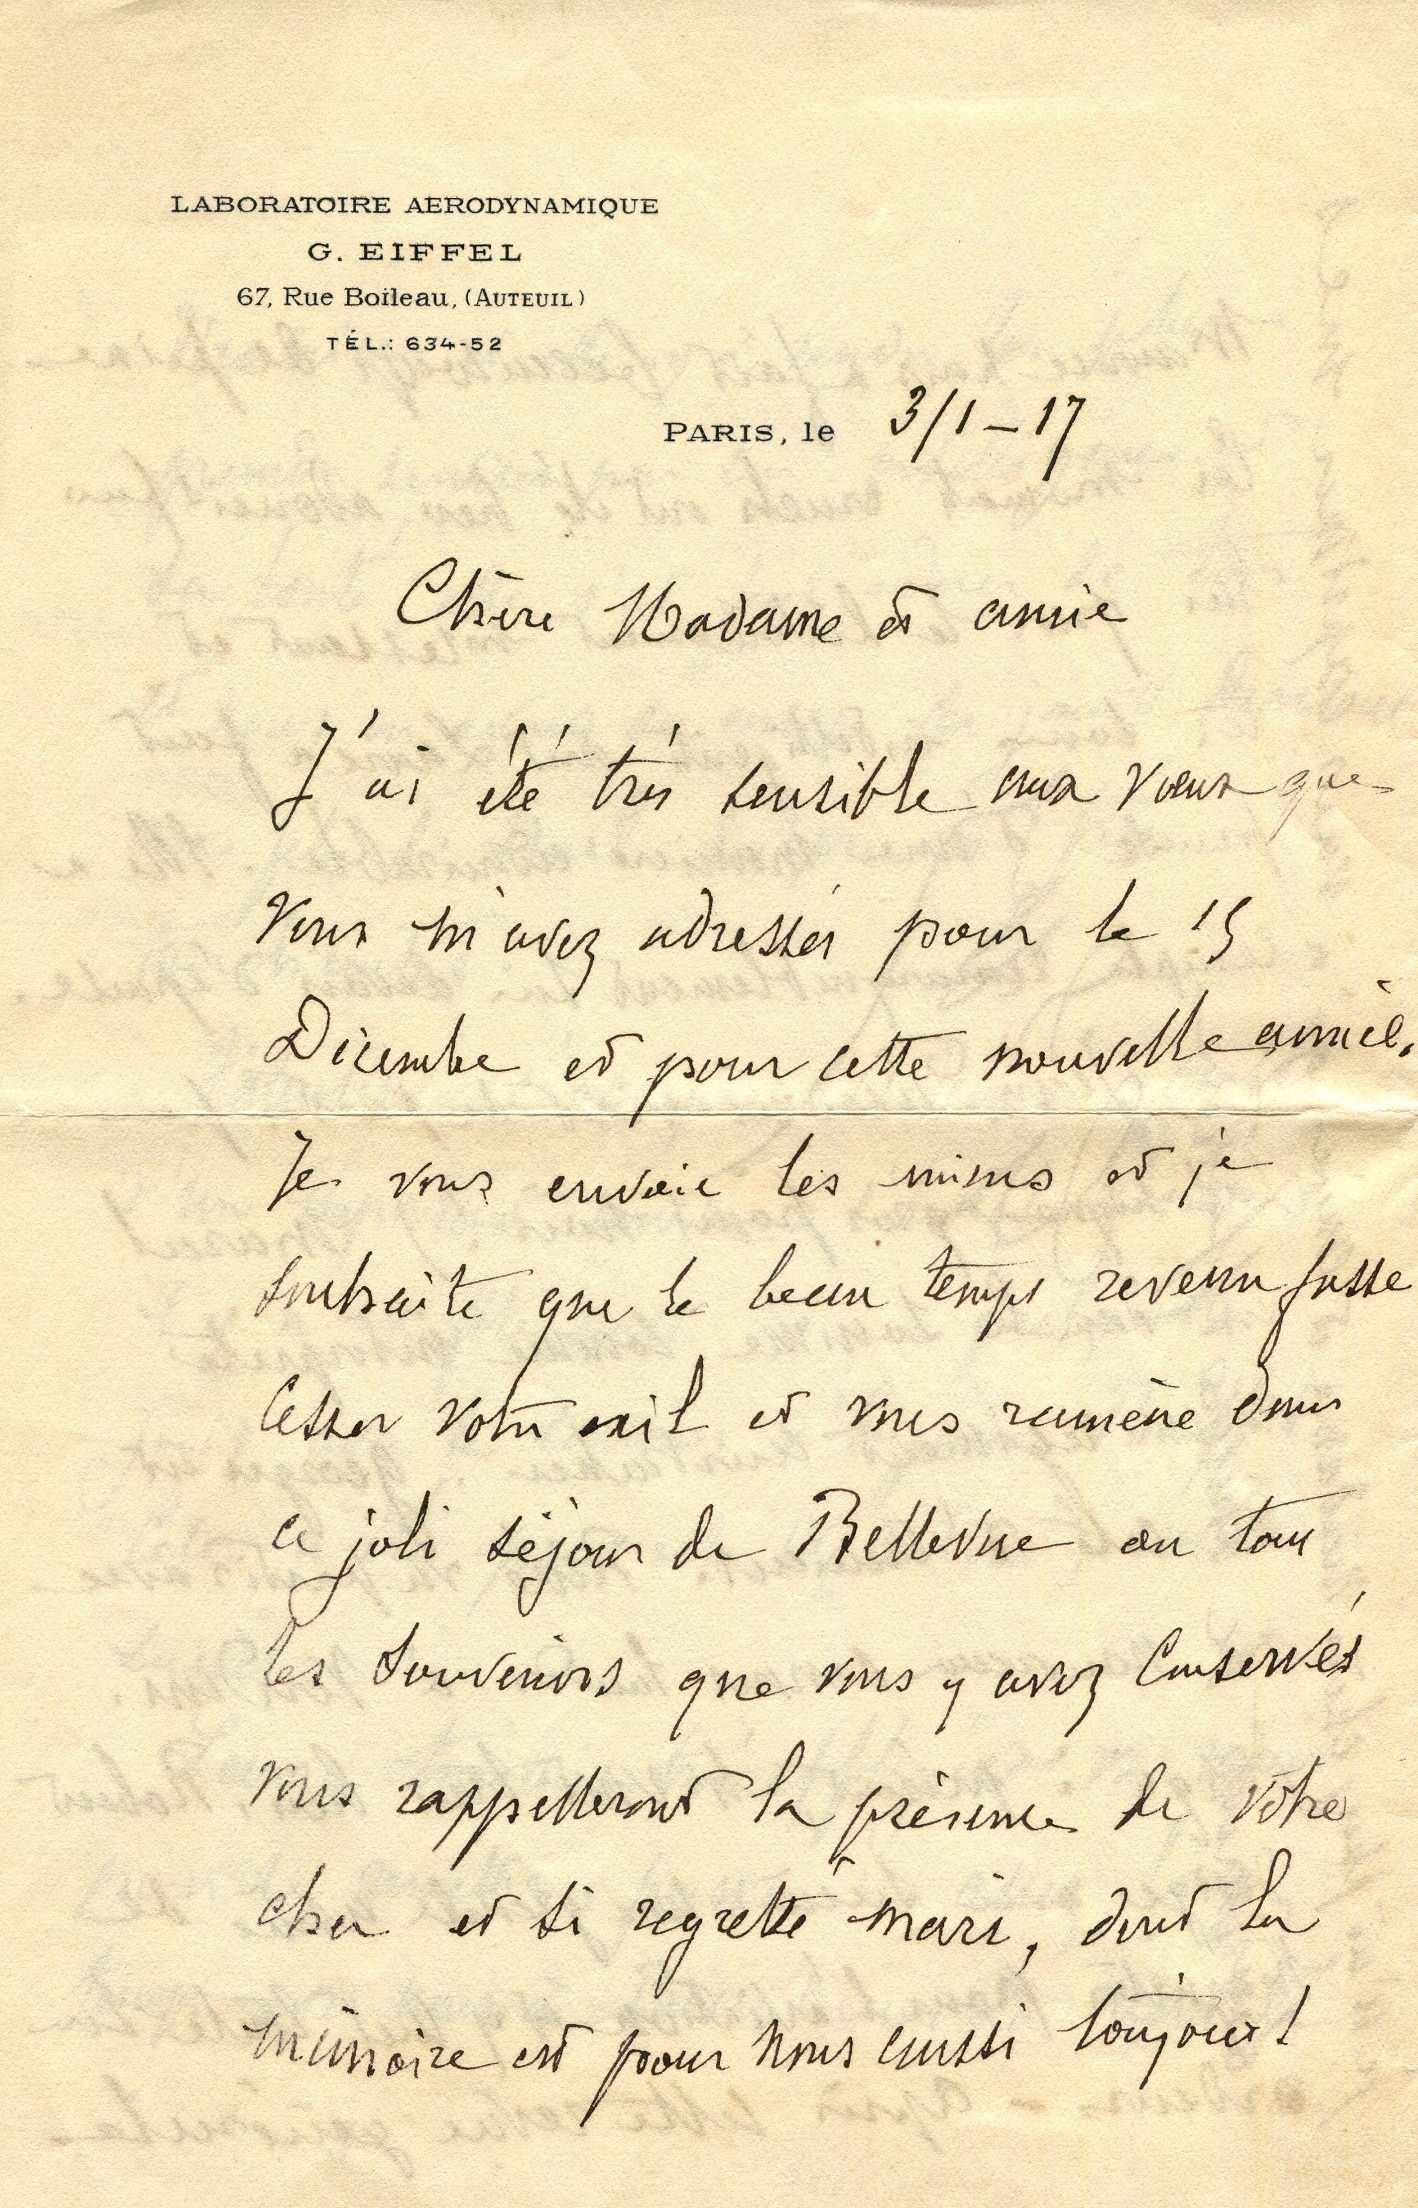 LABORATOIRE AERODYNAMIQUE
G. EIFFEL
67, Rue Boileau, (AUTEUIL)
TÉL.: 634-52
PARIS, le 3/1-17
Chère Madame et amie
J'ai été très sensible aux vœux que
vous m'avez adressés pour le 15
Décembre et pour cette nouvelle année.
Je vous envoie les miens et je
souhaite que le beau temps revenu fasse
cesser votre exil et vous ramène dans
ce joli séjour de Bellevue où tous
les souvenirs que vous y avez conservés
vous rappelleront la présence de votre
cher et si regretté mari, dont la
mémoire est pour nous aussi toujours